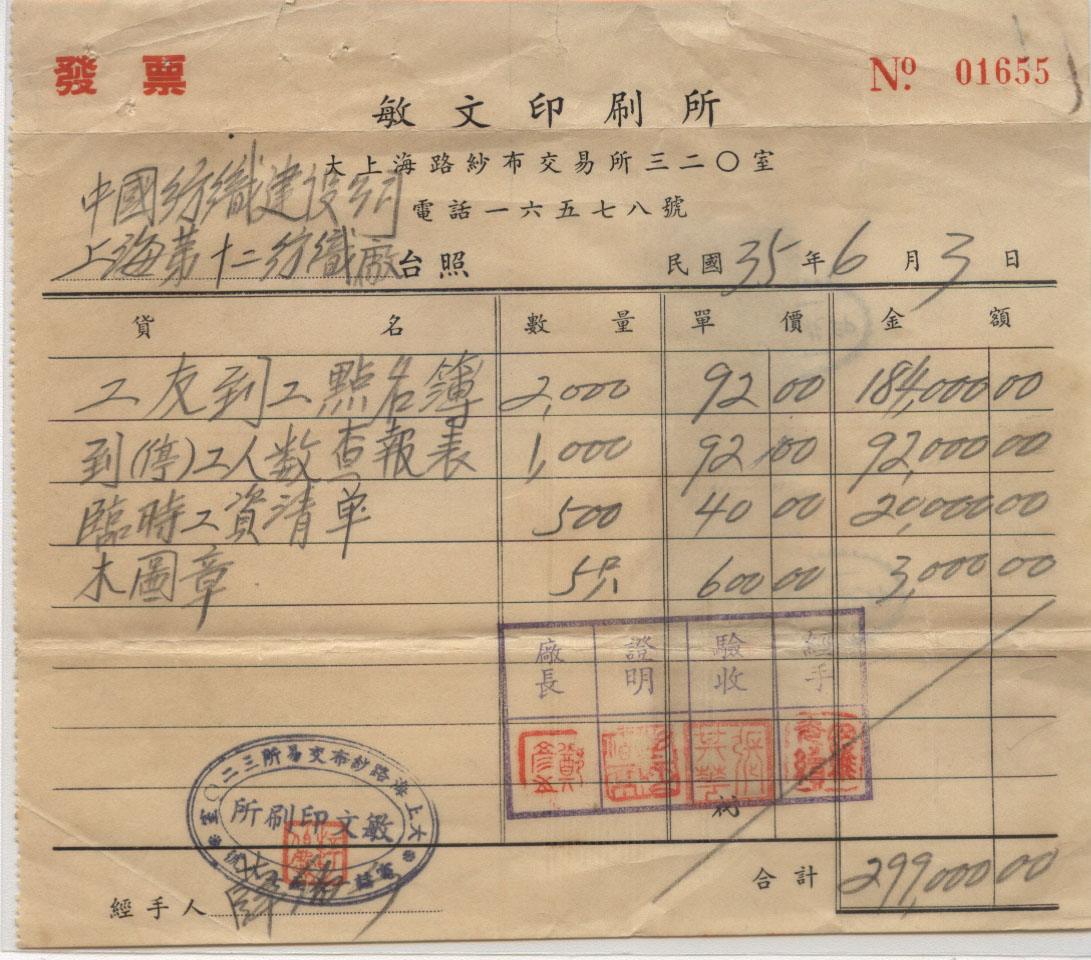 發票
No. 01655
敏文印刷所
大上海路紗布交易所三二〇室
電話一六五七八號
中國紡織建設公司
上海第十二紡織廠台照
民國35年6月3日
貨名 數量 單價 金額
工友到工點名簿 2,000 92 00 184,000 00
到(停)工人數查報表 1,000 92 00 92,000 00
臨時工資清單 500 40 00 20,000 00
木圖章 5只 600 00 3,000 00
廠長 證明 驗收 經手
大上海路紗布交易所三二〇室
敏文印刷所
電話
合計 299,000 00
經手人